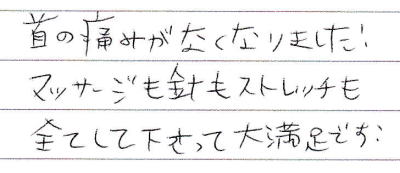 首の痛みがなくなりました!
マッサージも針もストレッチも
全てして下さって大満足です!